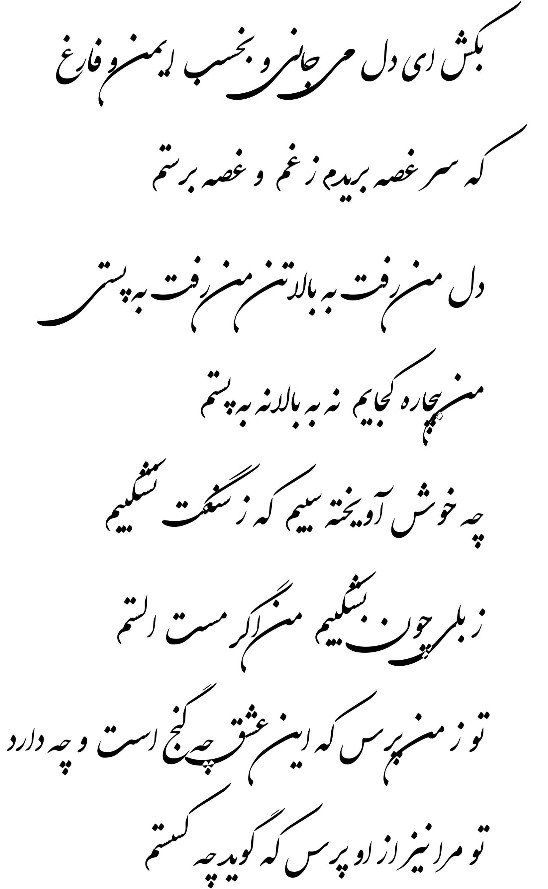 بکش ای دل می جانی و بخسب ایمن و فارغ
که سر غصه بریدم ز غم و غصه برستم
دل من رفت به بالا تن من رفت به پستی
من بیچاره کجایم نه به بالا نه به پستم
چه خوش آویخته سیبم که ز سنگت نشکیبم
ز بلی چون بشکیبم من اگر مست الستم
تو ز من پرس که این عشق چه گنج است و چه دارد
تو مرا نیز از او پرس که گوید چه کسستم